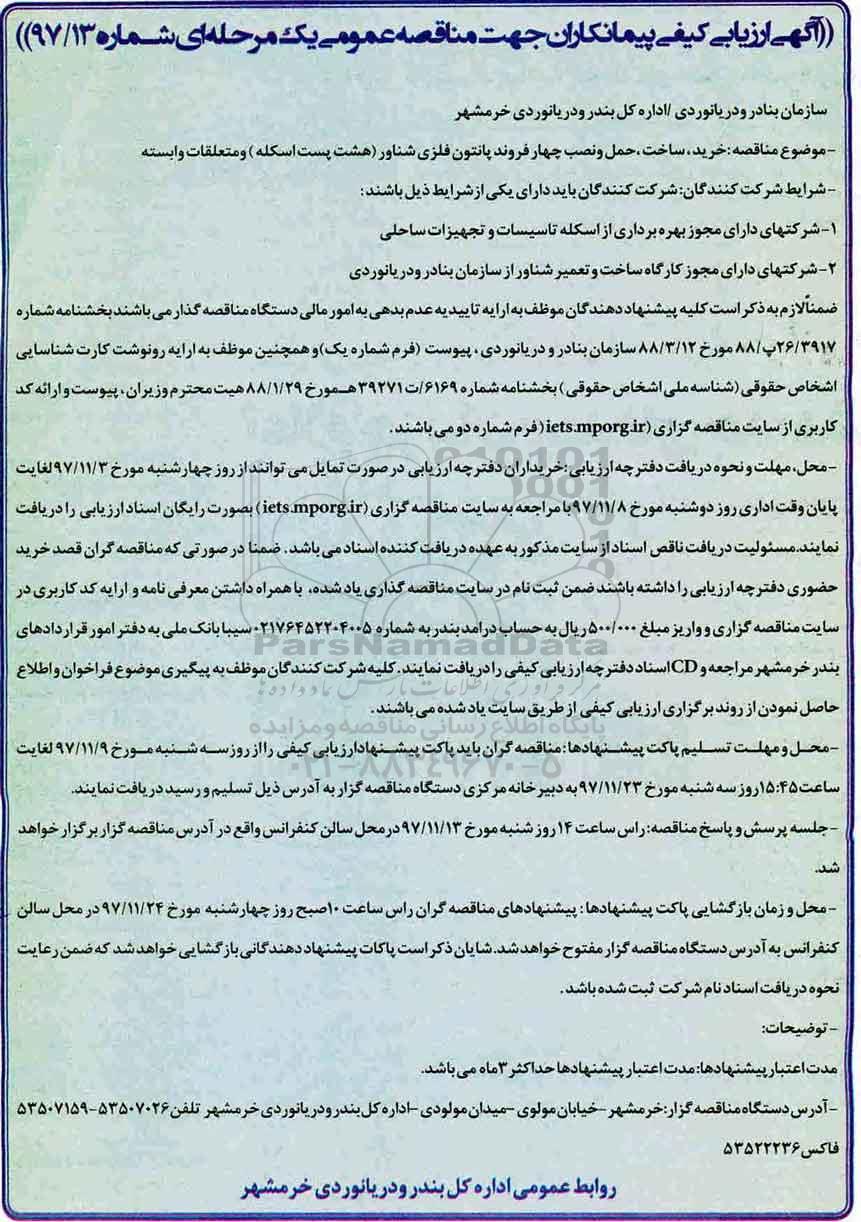 ((آگهی ارزیابی کیفی پیمانکاران جهت مناقصه عمومی یک مرحله‌ای شماره ۹۷/۱۳))
سازمان بنادر ودریانوردی /اداره کل بندر ودریانوردی خرمشهر
-موضوع مناقصه :خرید ، ساخت ،حمل ونصب چهار فروند پانتون فلزی شناور (هشت پست اسکله ) ومتعلقات وابسته
-شرایط شرکت کنندگان: شرکت کنندگان باید دارای یکی ازشرایط ذیل باشند:
۱-شرکتهای دارای مجوز بهره برداری از اسکله تاسیسات و تجهیزات ساحلی
۲-شرکتهای دارای مجوز کارگاه ساخت وتعمیر شناور از سازمان بنادر ودریانوردی
ضمناًلازم به ذکر است کلیه پیشنهاد دهندگان موظف به ارایه تاییدیه عدم بدهی به امور مالی دستگاه مناقصه گذار می باشند بخشنامه شماره
۲۶/۳۹۱۷پ/۸۸ مورخ ۸۸/۳/۱۲ سازمان بنادر و دریانوردی ، پیوست (فرم شماره یک)و همچنین موظف به ارایه رونوشت کارت شناسایی
اشخاص حقوقی (شناسه ملی اشخاص حقوقی ) بخشنامه شماره ۶۱۶۹/ت ۳۹۲۷۱هـ مورخ ۸۸/۱/۲۹ هیت محترم وزیران ، پیوست و ارائه کد
کاربری از سایت مناقصه گزاری (iets.mporg.ir( فرم شماره دو می باشند .
-محل، مهلت و نحوه دریافت دفترچه ارزیابی :خریداران دفترچه ارزیابی در صورت تمایل می توانند از روز چهارشنبه مورخ ۹۷/۱۱/۳ لغایت
پایان وقت اداری روز دوشنبه مورخ ۹۷/۱۱/۸ با مراجعه به سایت مناقصه گزاری (iets.mporg.ir) بصورت رایگان اسناد ارزیابی را دریافت
نمایند.مسئولیت دریافت ناقص اسناد از سایت مذکور به عهده دریافت کننده اسناد می باشد . ضمنا در صورتی که مناقصه گران قصد خرید
حضوری دفترچه ارزیابی را داشته باشند ضمن ثبت نام در سایت مناقصه گذاری یاد شده، با همراه داشتن معرفی نامه و ارایه کد کاربری در
سایت مناقصه گزاری و واریز مبلغ ۵۰۰/۰۰۰ ریال به حساب درامد بندر به شماره ۰۲۱۷۶۴۵۲۲۰۴۰۰۵ سیبا بانک ملی به دفتر امور قراردادهای
بندر خرمشهر مراجعه و CDاسناد دفترچه ارزیابی کیفی را دریافت نمایند . کلیه شرکت کنندگان موظف به پیگیری موضوع فراخوان و اطلاع
حاصل نمودن از روند برگزاری ارزیابی کیفی از طریق سایت یاد شده می باشند .
-محل و مهلت تسلیم پاکت پیشنهادها :مناقصه گران باید پاکت پیشنهادارزیابی کیفی رااز روز سه شنبه مورخ ۹۷/۱۱/۹ لغایت
ساعت۱۵:۴۵ روز سه شنبه مورخ ۹۷/۱۱/۲۳ به دبیرخانه مرکزی دستگاه مناقصه گزار به آدرس ذیل تسلیم و رسید دریافت نمایند.
-جلسه پرسش و پاسخ مناقصه: راس ساعت ۱۴ روز شنبه مورخ ۹۷/۱۱/۱۳ درمحل سالن کنفرانس واقع در آدرس مناقصه گزار برگزار خواهد
شد.
-محل و زمان بازگشایی پاکت پیشنهادها : پیشنهادهای مناقصه گران راس ساعت ۱۰صبح روز چهارشنبه مورخ ۹۷/۱۱/۲۴ در محل سالن
کنفرانس به آدرس دستگاه مناقصه گزار مفتوح خواهد شد.شایان ذکر است پاکات پیشنهاد دهندگانی بازگشایی خواهد شد که ضمن رعایت
نحوه دریافت اسناد نام شرکت ثبت شده باشد .
-توضیحات:
مدت اعتبار پیشنهادها:مدت اعتبار پیشنهادها حداکثر ۳ماه می باشد.
-آدرس دستگاه مناقصه گزار:خرمشهر -خیابان مولوی -میدان مولودی -اداره کل بندر ودریانوردی خرمشهر تلفن ۵۳۵۰۷۰۲۶-۵۳۵۰۷۱۵۹
فاکس ۵۳۵۲۲۲۳۶
روابط عمومی اداره کل بندر ودریانوردی خرمشهر
ParsNamadData
پایگاه اطلاع رسانی مناقصه و مزایده
۰۲۱-۸۸۳۴۹۶۷۰-۵